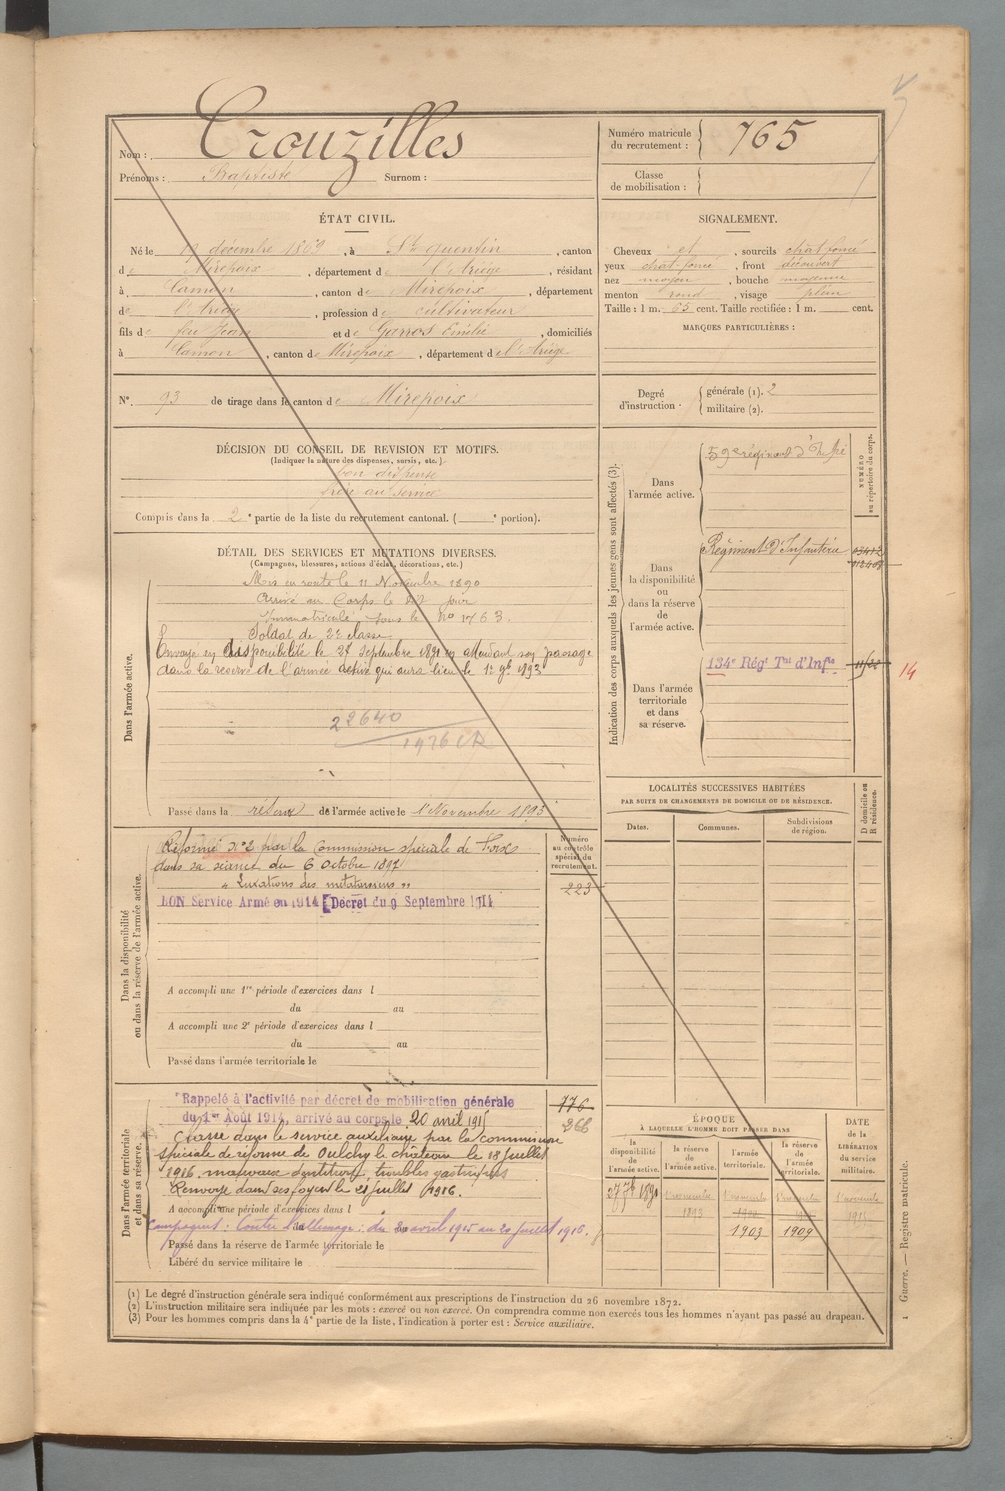 Nom : Crouzilles
Prénoms : Baptiste Surnom :
Numéro matricule du recrutement : 765
Classe de mobilisation :
ÉTAT CIVIL.
Né le décembre 1869, à St Quentin, canton
de Mirepoix, département de l'Ariège, résidant
à Camon, canton de Mirepoix, département
de l'Ariège, profession de cultivateur
fils de feu Jean et de Garros Emilie, domiciliés
à Camon, canton de Mirepoix, département de l'Ariège
SIGNALEMENT.
Cheveux et, sourcils chât. foncé
yeux chât. foncé, front découvert
nez moyen, bouche moyenne
menton rond, visage plein
Taille : 1 m. 65 cent. Taille rectifiée : 1 m. cent.
MARQUES PARTICULIÈRES :
N°. 93 de tirage dans le canton de Mirepoix
Degré d'instruction. générale (1). 2
militaire (2).
DÉCISION DU CONSEIL DE REVISION ET MOTIFS.
(Indiquer la nature des dispenses, sursis, etc.).
dispensé
au service
Compris dans la 2e partie de la liste du recrutement cantonal. ( e portion).
DÉTAIL DES SERVICES ET MUTATIONS DIVERSES.
(Campagnes, blessures, actions d'éclat, décorations, etc.)
Dans l'armée active.
Mis en route le 11 Novembre 1890
Arrivé au Corps le dit jour
Immatriculé sous le No 1763.
Soldat de 2e classe
Envoyé en disponibilité le septembre 1891 en attendant son passage
dans la réserve de l'armée active qui aura lieu le 1er 9bre 1893
22640
1926
Passé dans la réserve de l'armée active le 1 Novembre 1893
Indication des corps auxquels les jeunes gens sont affectés (3).
NUMÉRO au répertoire du corps.
Dans l'armée active.
59e régiment d'Infie
Dans la disponibilité ou dans la réserve de l'armée active.
Régiment d'Infanterie
Dans l'armée territoriale et dans sa réserve.
134e Régt Tal d'Infie
14
LOCALITÉS SUCCESSIVES HABITÉES
PAR SUITE DE CHANGEMENTS DE DOMICILE OU DE RÉSIDENCE.
Dates. Communes. Subdivisions de région. D domicile ou R résidence.
Dans la disponibilité ou dans la réserve de l'armée active.
Réformé No 2 par la Commission spéciale de Foix
dans sa séance du 6 Octobre 1897
" Luxations des métatarsiens "
BON Service Armé en 1914 [Décret du 9 Septembre 1914
Numéro au contrôle spécial du recrutement.
223
A accompli une 1re période d'exercices dans l
du au
A accompli une 2e période d'exercices dans l
du au
Passé dans l'armée territoriale le
Dans l'armée territoriale et dans sa réserve.
Rappelé à l'activité par décret de mobilisation générale
du 1er Août 1914, arrivé au corps le 20 avril 1915
Classé dans le service auxiliaire par la commission
spéciale de réforme de Oulchy le château le 18 juillet
1916. mauvaise dentition, troubles gastriques
Renvoyé dans ses foyers le 21 juillet 1916.
A accompli une période d'exercices dans l
Campagnes : Contre l'Allemagne : du 20 avril 1915 au 20 juillet 1916.
Passé dans la réserve de l'armée territoriale le
Libéré du service militaire le
176
266
ÉPOQUE
À LAQUELLE L'HOMME DOIT PASSER DANS
la disponibilité de l'armée active. la réserve de l'armée active. l'armée territoriale. la réserve de l'armée territoriale.
DATE de la LIBÉRATION du service militaire.
27 7bre 1891 1 novembre 1893 1 novembre 1903 1 novembre 1909 1 novembre 1915
(1) Le degré d'instruction générale sera indiqué conformément aux prescriptions de l'instruction du 26 novembre 1872.
(2) L'instruction militaire sera indiquée par les mots : exercé ou non exercé. On comprendra comme non exercés tous les hommes n'ayant pas passé au drapeau.
(3) Pour les hommes compris dans la 4e partie de la liste, l'indication à porter est : Service auxiliaire.
1 Guerre. — Registre matricule.